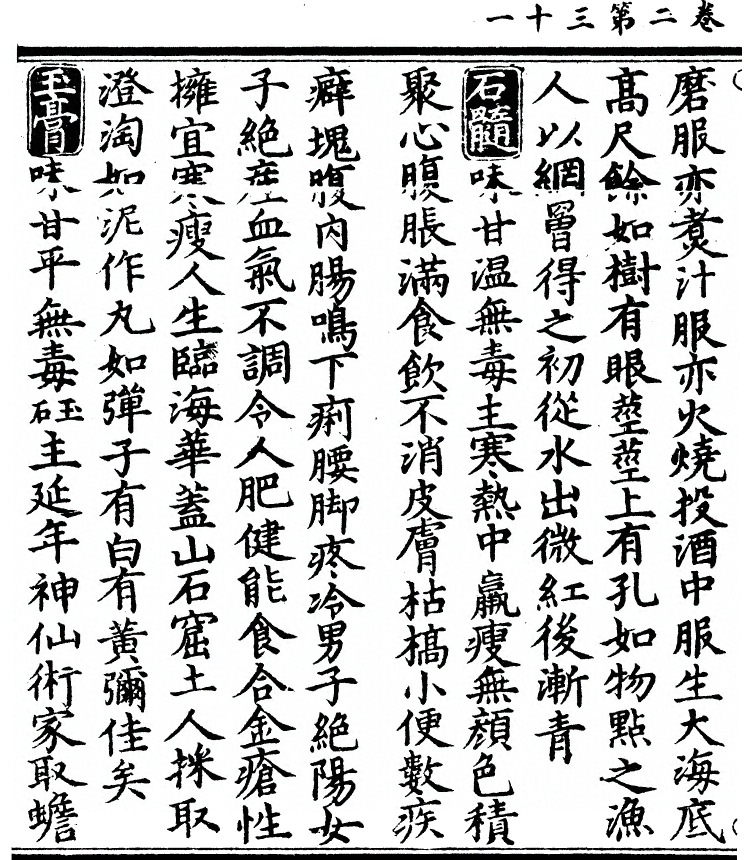 卷二第三十一
磨服亦煑汁服亦火燒投酒中服生大海底
髙尺餘如樹有眼莖莖上有孔如物點之漁
人以網罾得之初從水出微紅後漸青
石髓味甘温無毒主寒熱中羸瘦無顏色積
聚心腹脹滿食飲不消皮膚枯槁小便數疾
癖塊腹內腸鳴下痢腰脚疼冷男子絶陽女
子絶産血氣不調令人肥健能食合金瘡性
擁宜寒瘦人生臨海華蓋山石窟土人採取
澄淘如泥作丸如彈子有白有黃彌佳矣
玉膏味甘平無毒玉石主延年神仙術家取蟾